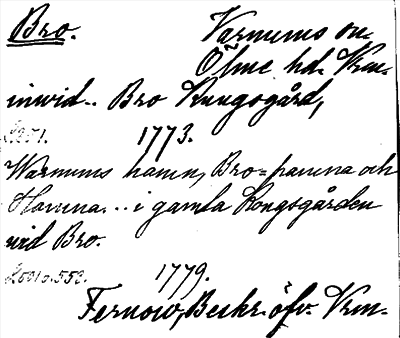 Bro. Varnums sn.
Ölme hd. Vrm.
invid.. Bro Kungsgård,
S. 251. 1773.
Warnums hamn, Bro=hamna och
Hamna... i gamla Kongsgården
vid Bro.
S. 501 o. 552. 1779.
Fernow, Beskr. öfv. Vrm.